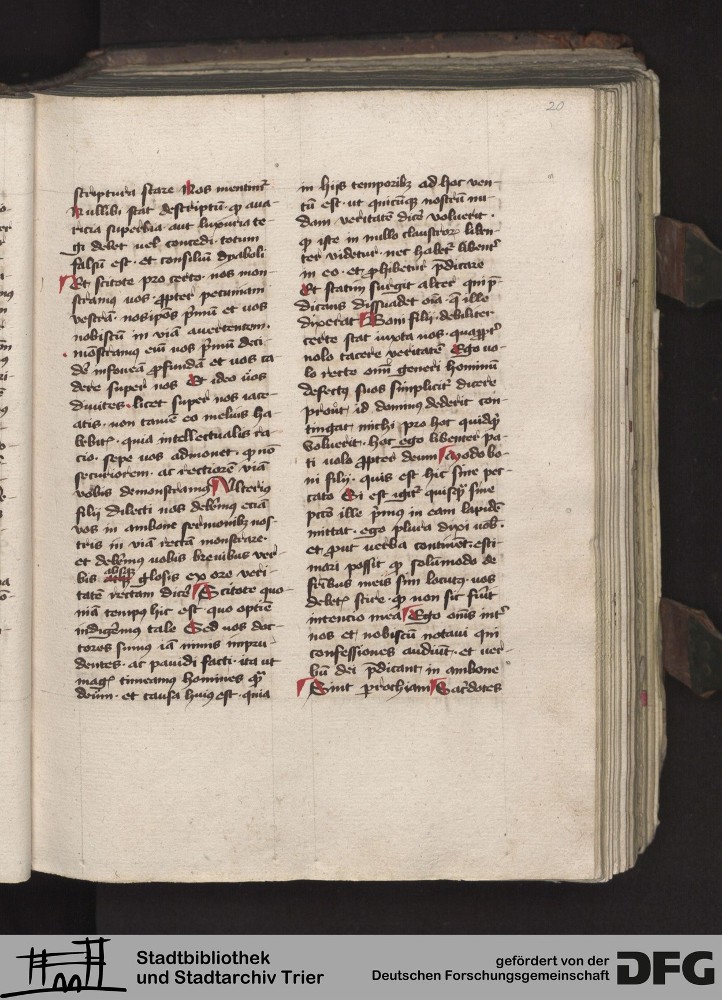 20
scriptura stare Nos mentimꝰ
Nullibi stat descriptū · ꝙ aua
ricia superbia · aut luxuria te-
gi debet uel concedi · totum
falsū est · et consiliū dyaboli
Et scitote pro certo · nos mon-
stramus uos · ꝓpter pecuniam
vestrā · nosipos p̄mū et vos
nobiscū in viā auertentem ·
monstramus eū uos p̄mū deci-
dē in foueā ꝓfundā et vos ca
dere super nos Et ideo uos
diuites · licet super nos iace-
atis · non tamē eo melius ha-
bebitꝭ · quia intellectualis ra-
cio · sepe vos admonet · ꝙ nō
securiorem · ac rectiorē viā
vobis demonstramꝰ Vlterius
filij dilecti nos debem̄ꝰ eciā
vos in ambone sermonibꝫ nos-
tris in viā rectā monstrare ·
et debem̄ꝰ uobis breuibus ver-
bis absqꝫ glosis ex ore veri-
tatē rectam dicē Scitote quo-
niā tempꝰ hic est · quo optīe
indigem̄ꝰ tale Sed nos doc-
tores sumꝰ iā nimis impru-
dentes · ac pauidi facti · ita ut
magꝭ timeamꝰ homines ꝙ̄
deum · et causa huiꝰ est · quia
in hijs temporibꝫ ad hoc ven-
tū est · ut quicūqꝫ nostrū nu-
dam veritatē dicē voluerit ·
ꝙ iste in nullo claustroꝝ liben-
ter videtur · nec habetꝰ libentꝰ
in eo · et ꝓhibetur p̄dicare
Et statim surgit alter qui p̄-
dicans dissuadet oīa · que ille
dixerat Boni filij · debiliter
certe stat iuxta nos · quapp̄t
nolo tacere veritatē Ego uo-
lo recto omī generi hominū
defectꝰ suos simplicitꝰ dicere
prout id dominus dederit con-
tingat michi pro hoc quidqͥd
voluerit · hoc ego libenter pa-
ti uolo ꝓpter deum Modo bo-
ni filij · quis est hic sine pec-
cato Si est igitꝰ quispꝫ sine
pctō ille p̄mꝰ in eam lapidē
mittat · ego plura dixi uob̄ ·
et ꝓut verba continēt · esti-
mari possit ꝙ solūmodo de
frībus meis sim locutꝰ · vos
debetꝭ scire · ꝙ non sic fuīt
intencio mea Ego oīnis intꝰ
nos et nobiscū notaui qui
confessiones audiūt · et uer-
bū dei p̄dicant in ambone
Sint prochiani Sac̄dotes
Stadtbibliothek
und Stadtarchiv Trier
gefördert von der
Deutschen Forschungsgemeinschaft
DFG